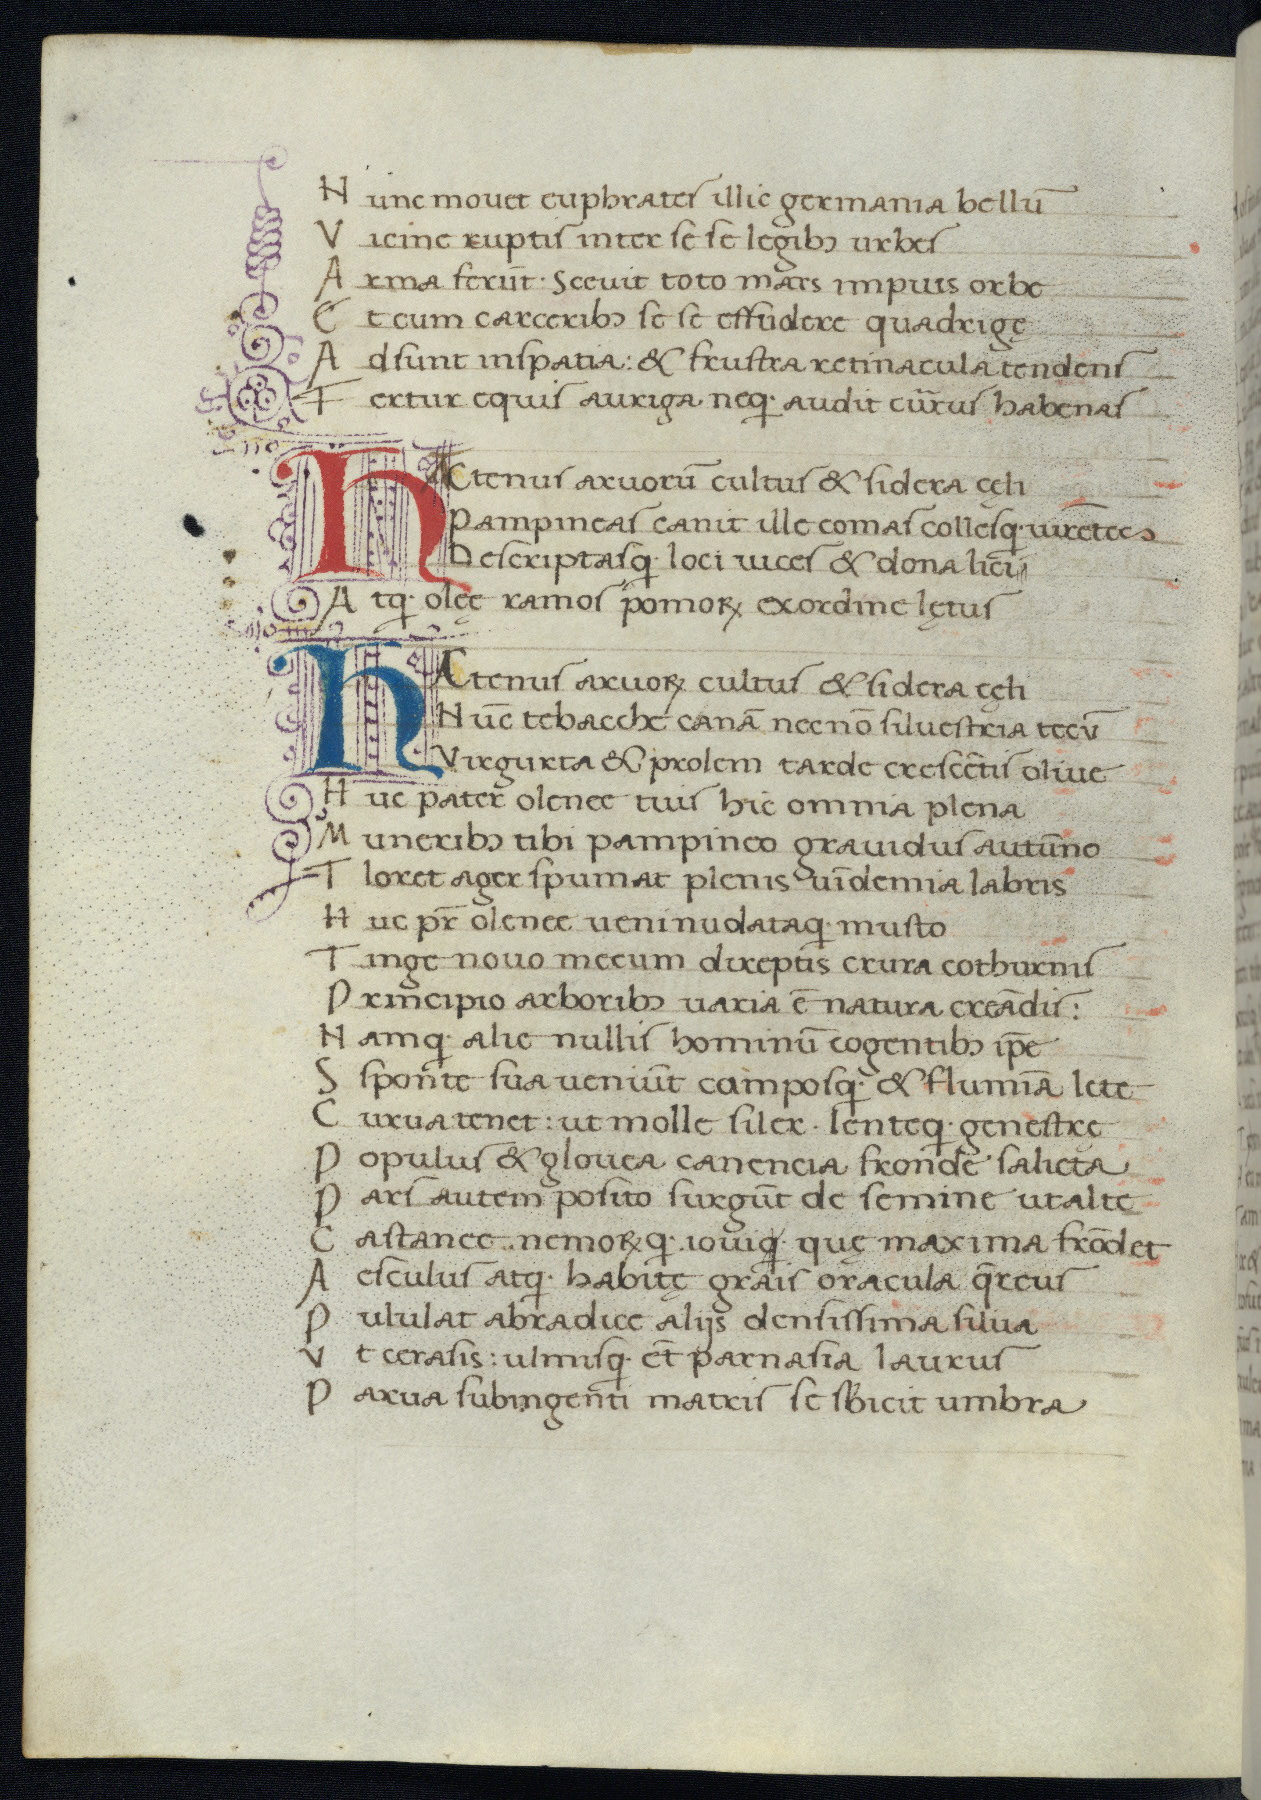 Nunc mouet euphrates illic germania bellū
Vicine ruptis inter se se legibꝫ urbes
Arma ferūt· Seeuit toto mars impius orbe
Et cum carceribꝫ se se effūdere quadrigę
Adsunt inspatia: & frustra retinacula tendens
Fertur equis auriga neqꝫ audit cūrus habenas
HActenus aruorū cultus & sidera cęli
Pampineas canit ille comas collesqꝫ uirētes
Descriptasqꝫ loci uices & dona licū
Atqꝫ olęe ramos pomoꝝ exordine lętus
HActenus aruoꝝ cultus & sidera cęli
Nūc te bacche canā nec nō siluestria tecū
Virgurta & prolem tarde crescētis oliue
Huc pater olenee tuis hic omnia plena
Muneribꝫ tibi pampineo grauidus autūno
Tloret ager spumat plenis uīdemia labris
Huc pr̄ olenee ueni nudataqꝫ musto
Tinge nouo mecum direptis crura cothurnis
Principio arboribꝫ uaria ē natura creādis:
Namqꝫ alie nullis hominū cogentibꝫ ip̄e
Ssponte sua ueniūt camposqꝫ & flumiā lete
Curua tenet: ut molle siler· lenteqꝫ genestrę
Populus & glouca canencia fronde salicta
Pars autem posito surgūt de semine ut alte
Castanee nemoꝝqꝫ iouiqꝫ quę maxima frōdet
Aesculus atqꝫ habitę grais oracula q̄rcus
Pululat abradice alijs densissima silua
Vt cerasis: ulmisqꝫ et̄ parnasia laurus
Parua sub ingenti matris se sb̄icit umbra